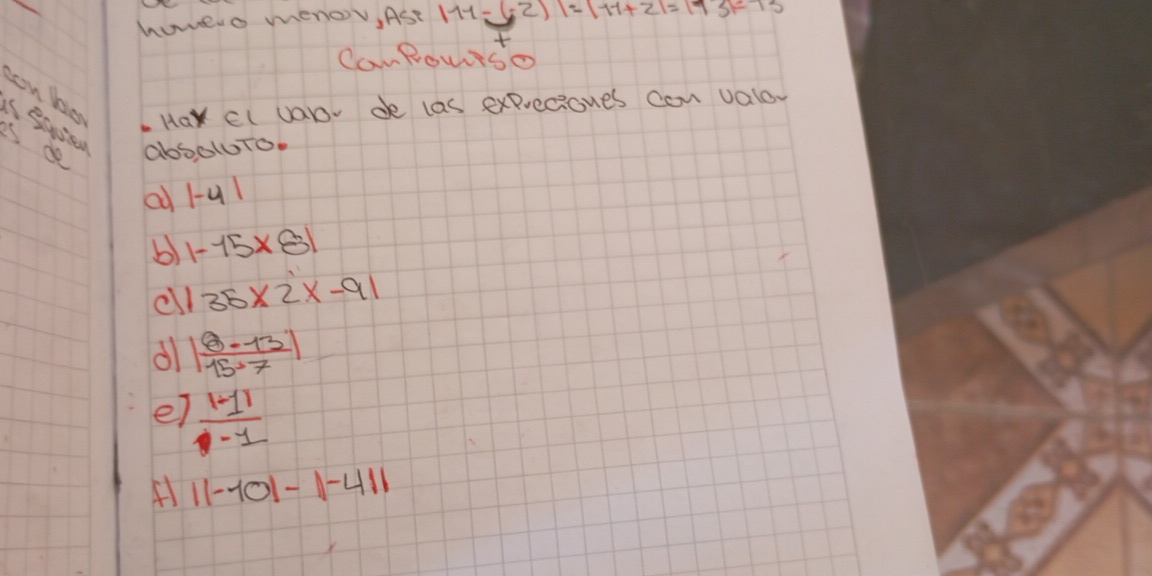 numero menor, Así |11-(-2)|=|11+2|=|13|=13
+
Compromiso
. Hax El valor de las expreciones con valor
absoluto.
a) |-4|
b) |-15x8|
c) |35x2x-9|
d) |8-13
15-7|
e) |-1|
-1
f) ||-10|-|-4||
con valor
de